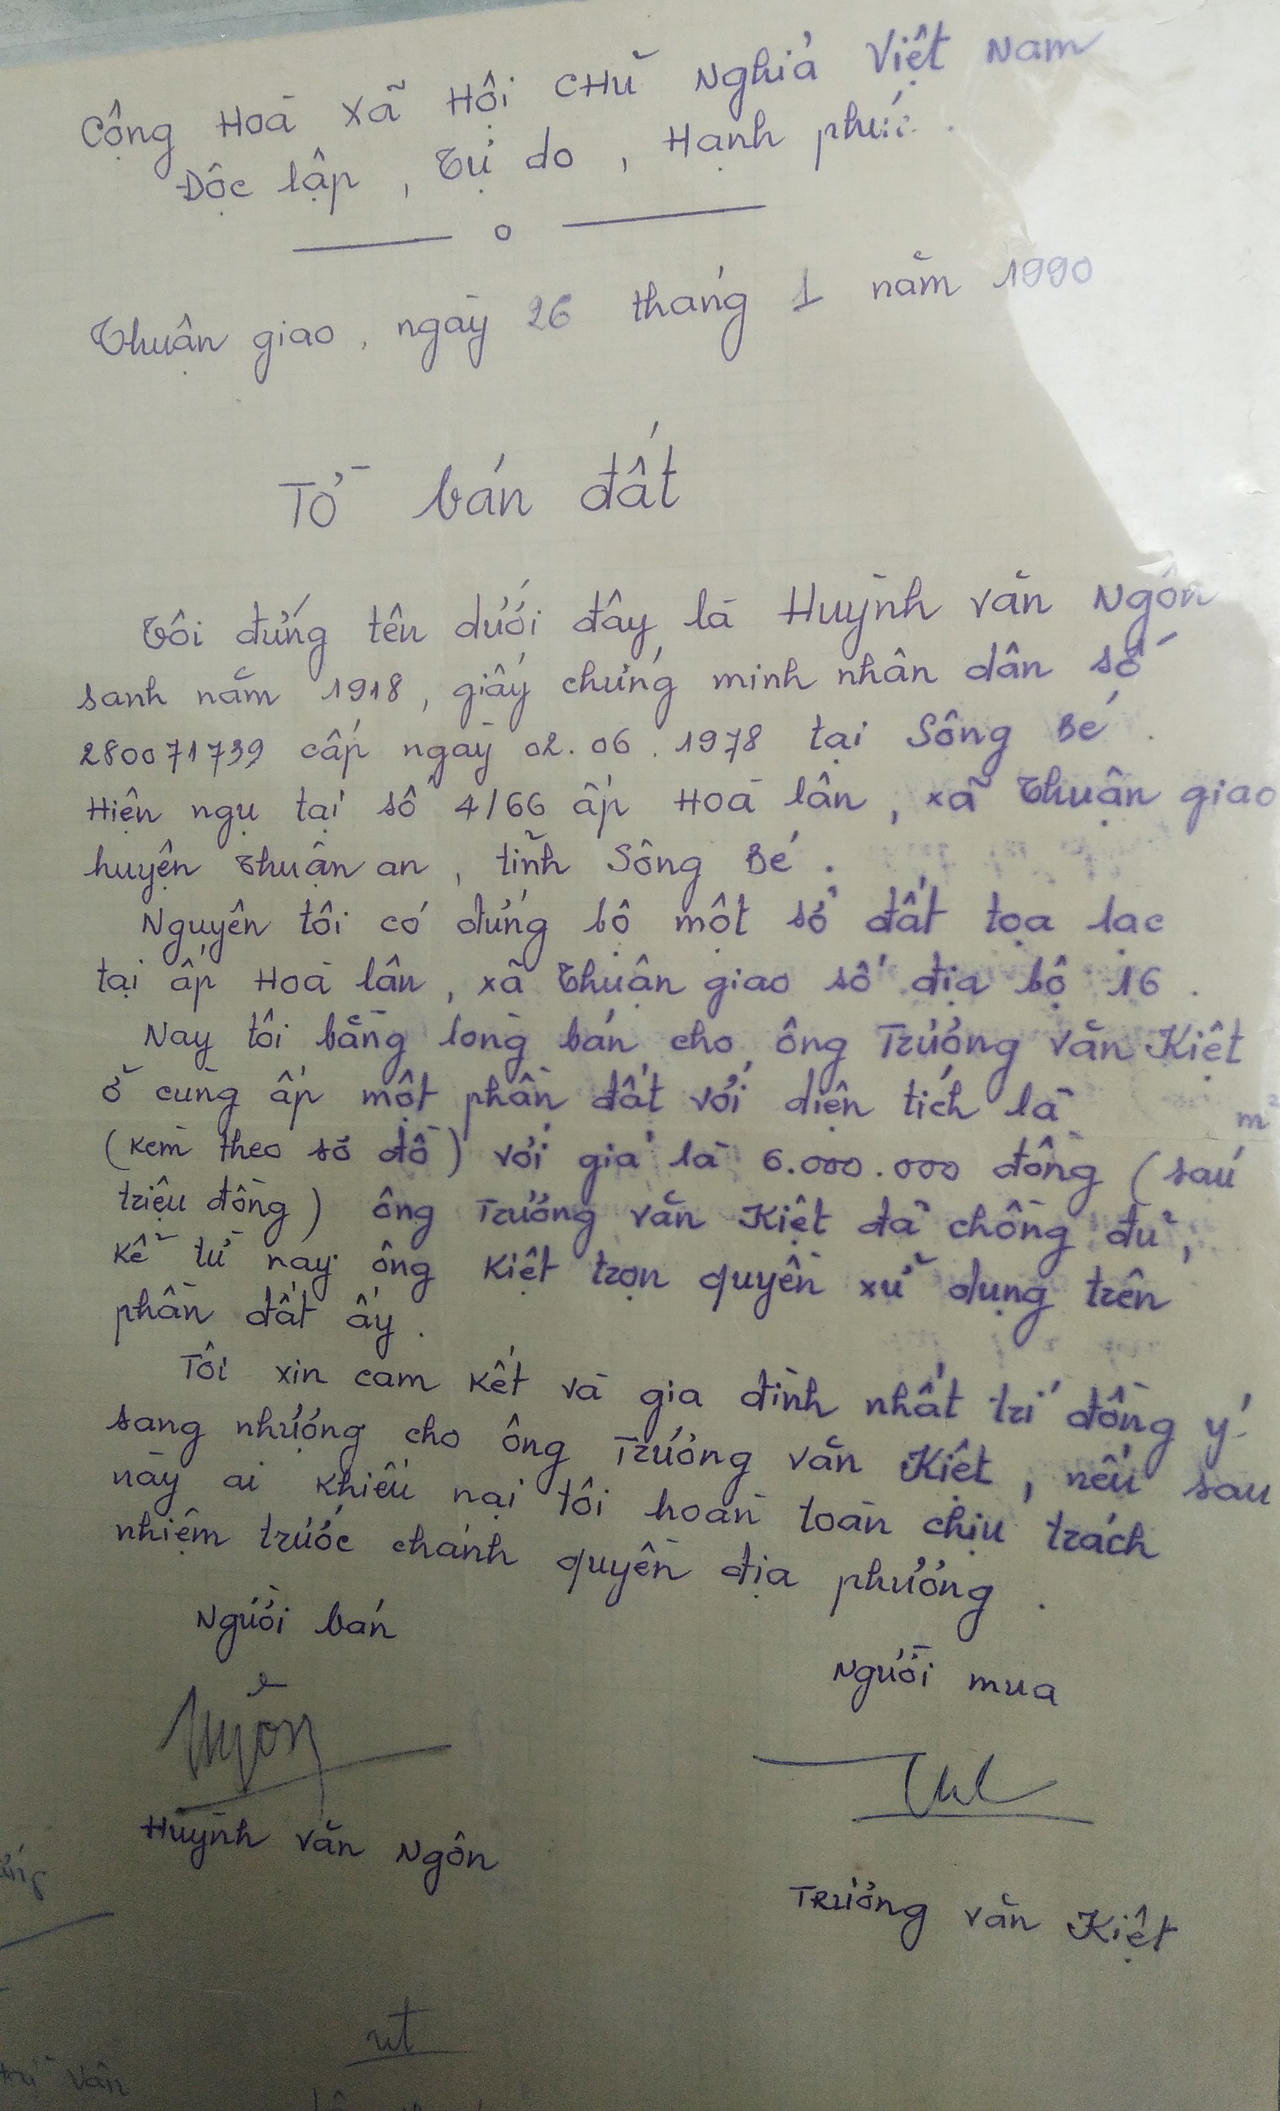 Cộng Hoà Xã Hội CHŨ Nghiả Việt Nam
Độc lập, Tự do, Hạnh phúc.
Thuận giao, ngày 26 tháng 1 năm 1990
Tờ bán đất
Tôi đứng tên dưới đây là Huỳnh văn Ngôn
sanh năm 1918, giấy chứng minh nhân dân số
280071739 cấp ngày 02.06.1978 tại Sông Bé.
Hiện ngụ tại số 4/66 ấp Hoà lân, xã Thuận giao
huyện Thuận an, tỉnh Sông Bé.
Nguyên tôi có đứng bộ một sở đất tọa lạc
tại ấp Hoà lân, xã Thuận giao số địa bộ 16.
Nay tôi bằng lòng bán cho ông Trương văn Kiệt
ở cùng ấp một phần đất với diện tích là m²
(kèm theo sơ đồ) với giá là 6.000.000 đồng (sáu
triệu đồng) ông Trương văn Kiệt đã chồng đủ,
kể từ nay ông Kiệt trọn quyền xử dụng trên
phần đất ấy.
Tôi xin cam kết và gia đình nhất trí đồng ý
sang nhượng cho ông Trương văn Kiệt, nếu sau
này ai khiếu nại tôi hoàn toàn chịu trách
nhiệm trước chánh quyền địa phương.
Người bán
Người mua
Ngôn
Huỳnh văn Ngôn
Trương văn Kiệt
út
văn